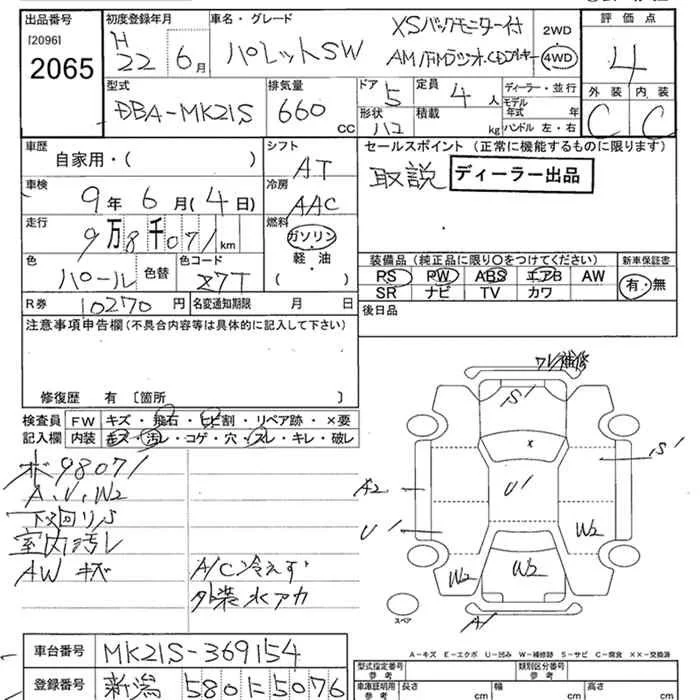 出品番号
[2096]
2065
初度登録年月
H
22 6月
車名・グレード
パレットSW
XSバックモニター付
AM/FMラジオ・CDプレーヤー
2WD
4WD
評価点
4
外装 内装
C C
型式
DBA-MK21S
排気量
660 CC
ドア 5
形状 ハコ
定員 4人
積載 kg
ディーラー・並行
モデル
年式 年
ハンドル 左・右
車歴
自家用・( )
シフト
AT
セールスポイント (正常に機能するものに限ります)
取説 ディーラー出品
車検
9年 6月(4日)
冷房
AAC
走行
9万8千071km
燃料
ガソリン
軽・油
( )
色
パール
色替
色コード
Z7T
装備品 (純正品に限り○をつけてください)
PS PW ABS エアB AW
SR ナビ TV カワ
新車保証書
有・無
R券 10270円
名変通知期限 月 日
後日品
注意事項申告欄 (不具合内容等は具体的に記入して下さい)
修復歴 有 〔箇所 〕
検査員
記入欄
FW キズ・飛石・ヒビ割・リペア跡・×要
内装 キズ・汚レ・コゲ・穴・スレ・キレ・破レ
メ98071
A.U.W2
下廻りS
室内汚レ
AW キズ
A/C冷えず
外装水アカ
ワレ補修
S1
×
S1
U1
A2
U1
W2
W2
W2
A1
スペア
A-キズ E-エクボ U-凹み W-補修跡 S-サビ C-腐食 ××-交換済
車台番号 MK21S-369154
登録番号 新潟 580 に 5076
型式指定番号
参考
類別区分番号
参考
車庫証明用
参考
長さ cm
幅 cm
高さ cm